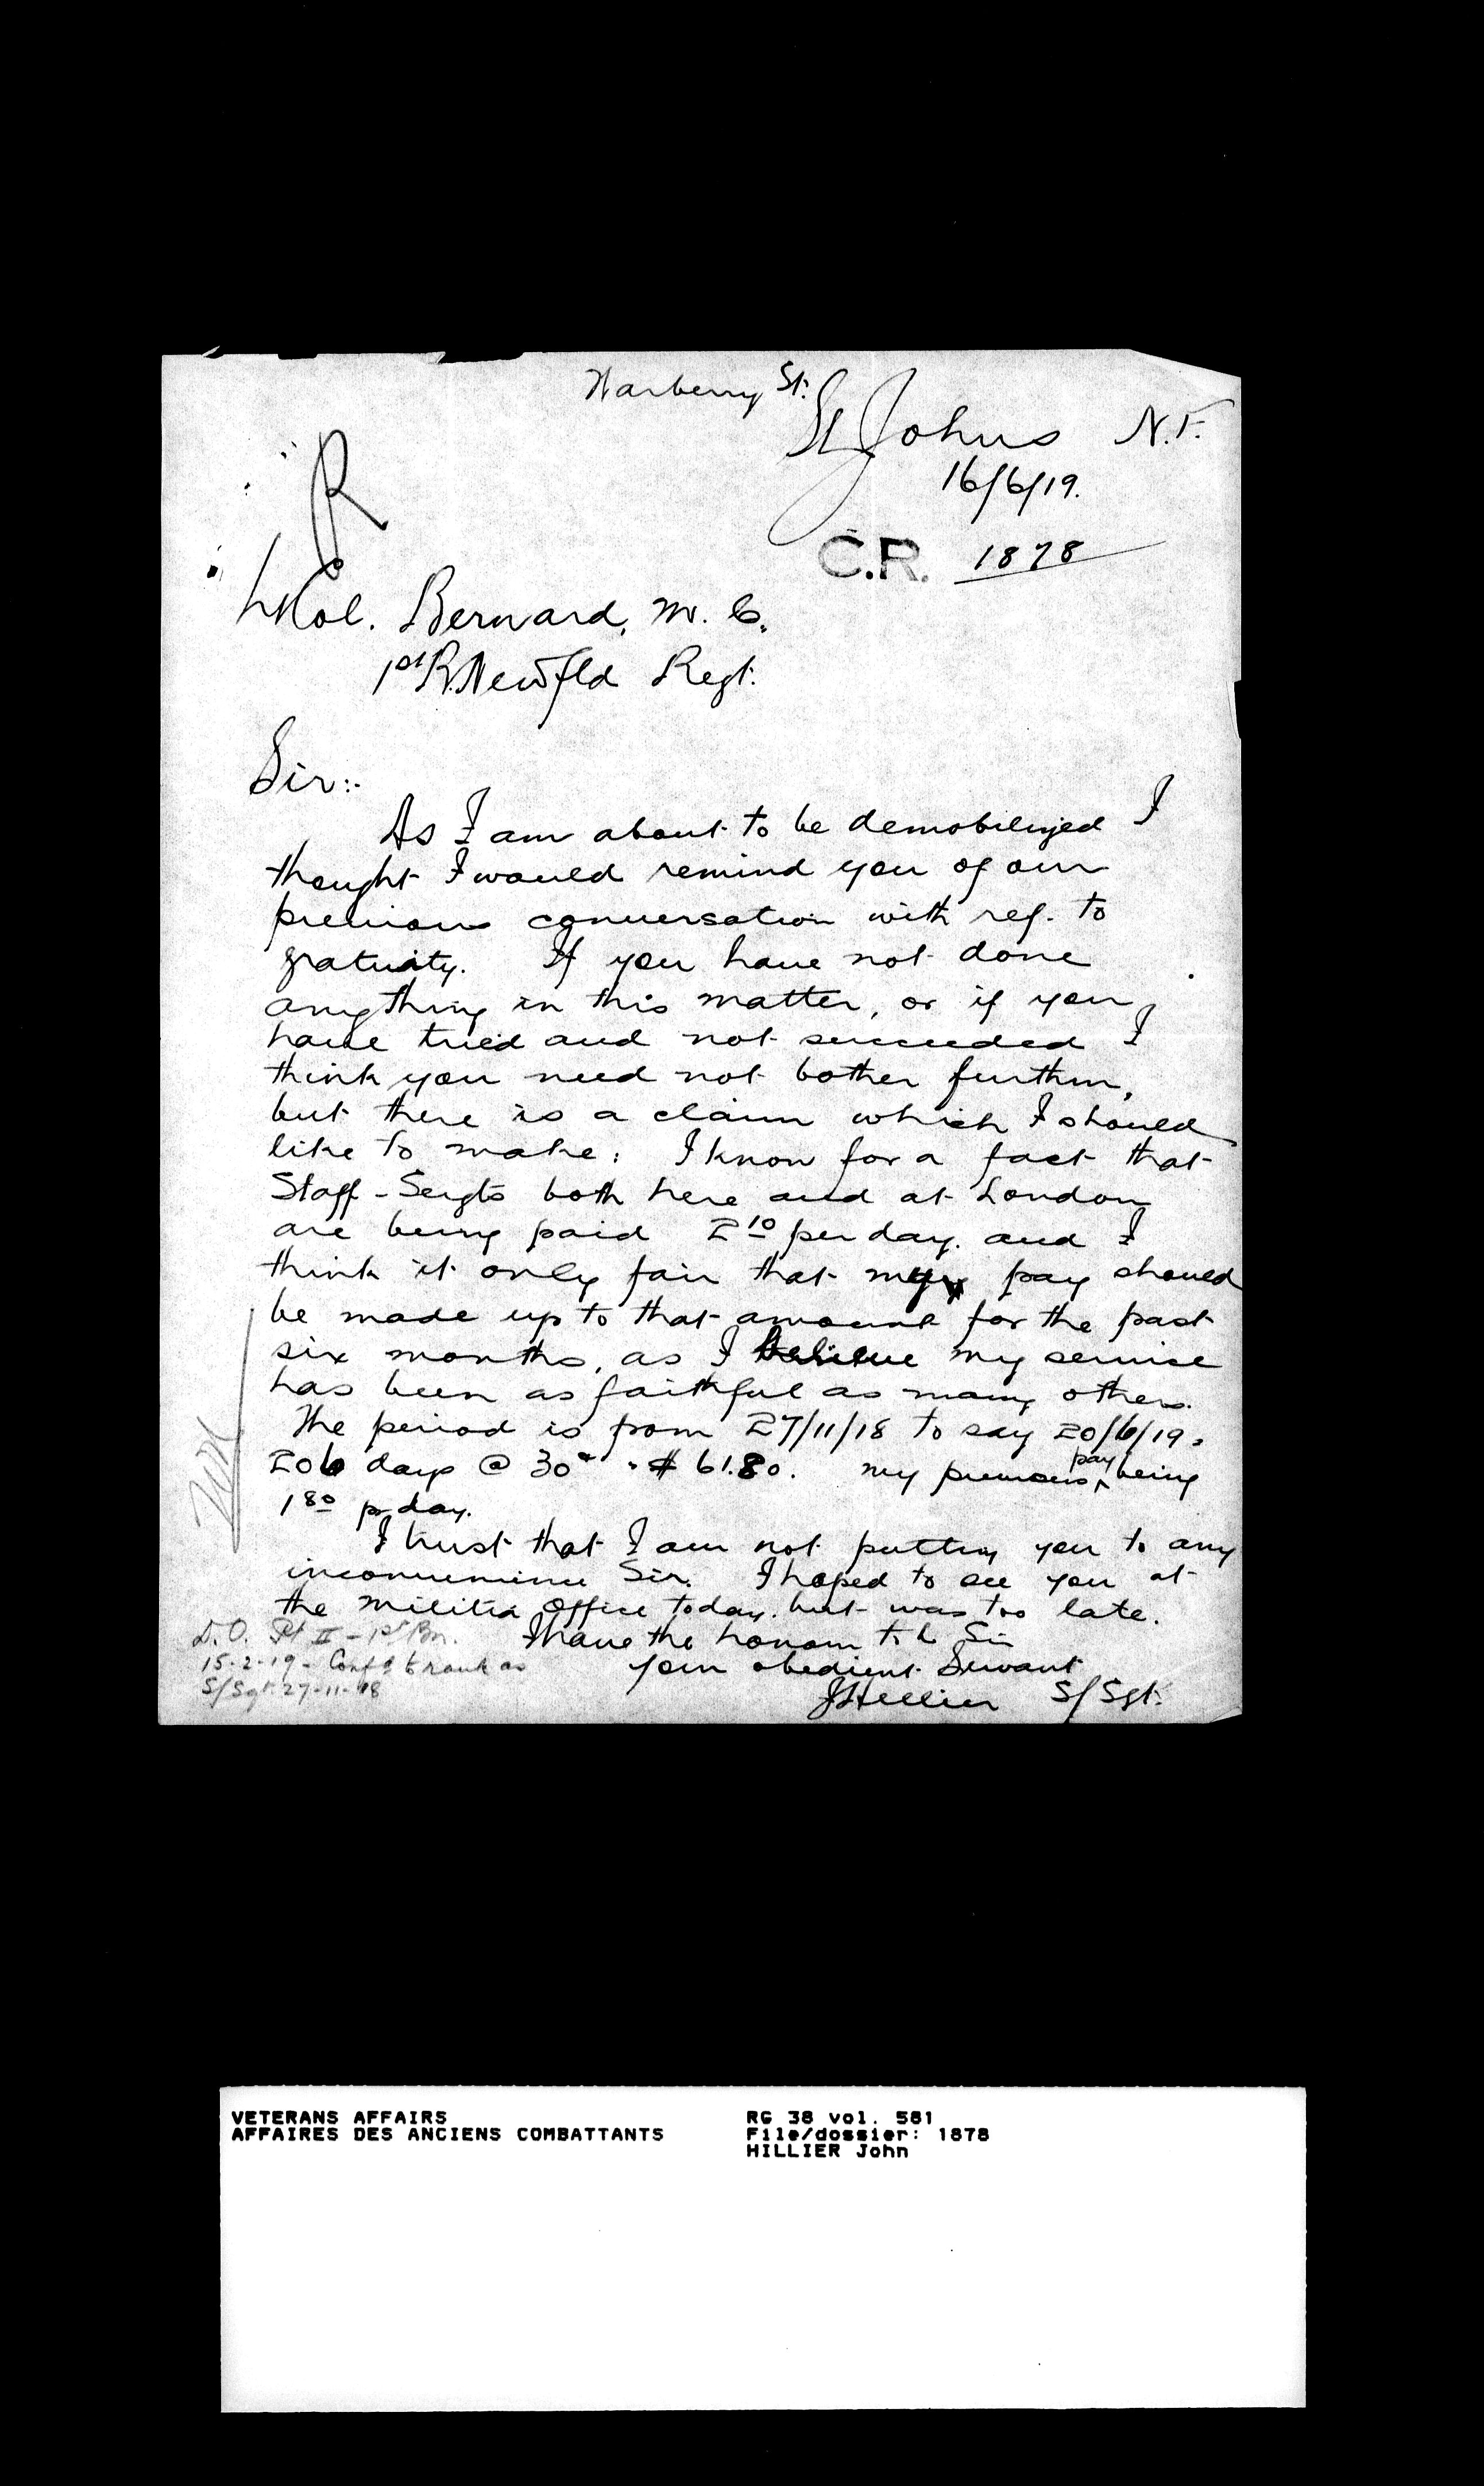 Warberry St.
St Johns N.F.
16/6/19.
R
C.R. 1878
Lt Col. Bernard, M.C.
1st R. Newfld Regt.
Sir:-
As I am about to be demobilized I
thought I would remind you of our
previous conversation with ref. to
gratuity. If you have not done
anything in this matter, or if you
have tried and not succeeded I
think you need not bother further,
but there is a claim which I should
like to make: I know for a fact that
Staff-Sergts both here and at London
are being paid 2 10 per day. and I
think it only fair that my pay should
be made up to that amount for the past
six months, as I believe my service
has been as faithful as many others.
The period is from 27/11/18 to say 20/6/19,
206 days @ 30¢ = $61.80. My previous pay being
1 80 pr day.
I trust that I am not putting you to any
inconvenience Sir. I hoped to see you at
the Militia Office today. but was too late.
I have the honour to be Sir
Your obedient Servant
J Hillier S/Sgt.
D.O. Pt II - 1st Bn.
15-2-19 - Conf'd to rank as
S/Sgt. 27-11-18
VETERANS AFFAIRS
AFFAIRES DES ANCIENS COMBATTANTS
RG 38 vol. 581
File/dossier: 1878
HILLIER John